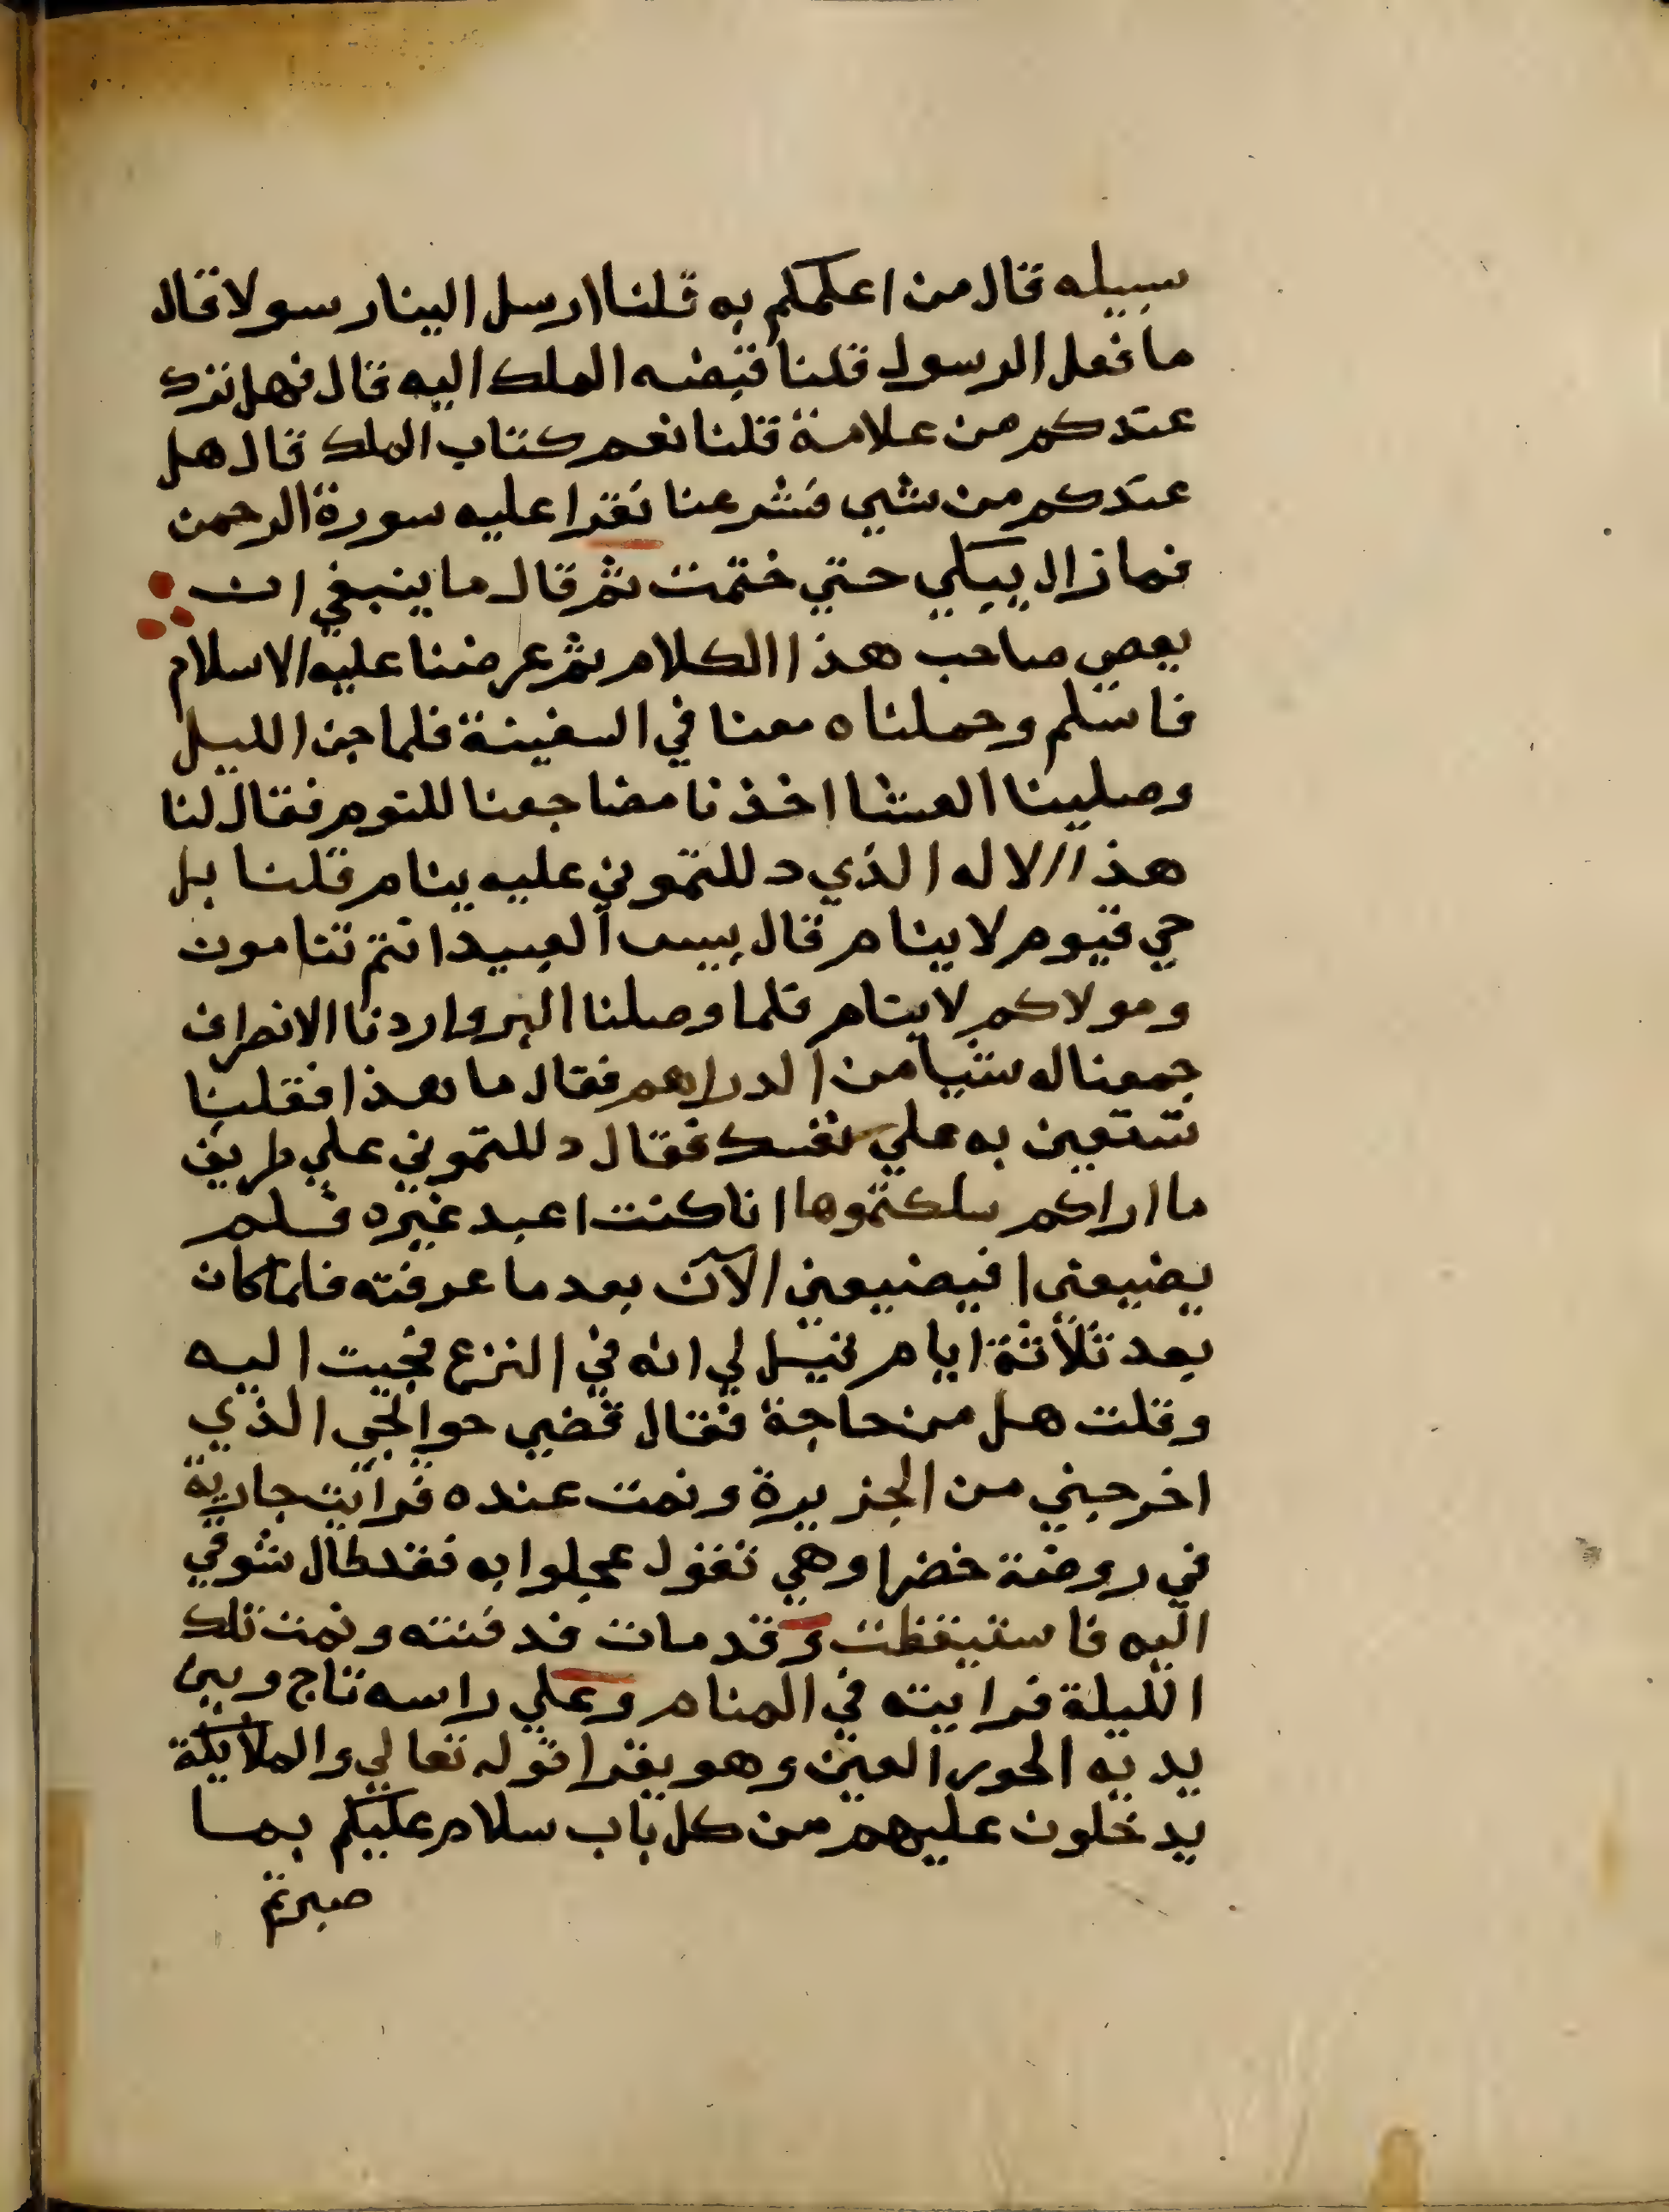 سبيله قال من اعلمكم به قلنا ارسل الينا رسولا قال
ما فعل الرسول قلنا قبضه الملك اليه قال فهل ترك
عندكم من علامة قلنا نعم كتاب الملك قال هل
عندكم من شي فشرعنا نقرا عليه سورة الرحمن
فما زال يبكي حتي ختمت ثم قال ما ينبغي ان
يعصي صاحب هذا الكلام ثم عرضنا عليه الاسلام
فاسلم وحملناه معنا في السفينة فلما جن الليل
وصلينا العشا اخذنا مضاجعنا للنوم فقال لنا
هذا الاله الذي دللتموني عليه ينام قلنا بل
حي قيوم لا ينام قال بيس العبيد انتم تنامون
ومولاكم لا ينام فلما وصلنا البر واردنا الانصراف
جمعنا له شيا من الدراهم فقال ما هذا فقلنا
تستعين به علي نفسك فقال دللتموني علي طريق
ما اراكم سلكتموها انا كنت اعبد غيره فلم
يضيعني افيضيعني الآن بعد ما عرفته فلما كان
بعد ثلاثة ايام قيل لي انه في النزع فجيت اليه
وقلت هل من حاجة فقال قضي حوايجي الذي
اخرجني من الجزيرة ونمت عنده فرايت جارية
في روضة خضرا وهي تقول عجلوا به فقد طال شوقي
اليه فاستيقظت وقد مات فدفنته ونمت تلك
الليلة فرايته في المنام وعلي راسه تاج وبين
يديه الحور العين وهو يقرا قوله تعالي والملايكة
يدخلون عليهم من كل باب سلام عليكم بما
صبرتم